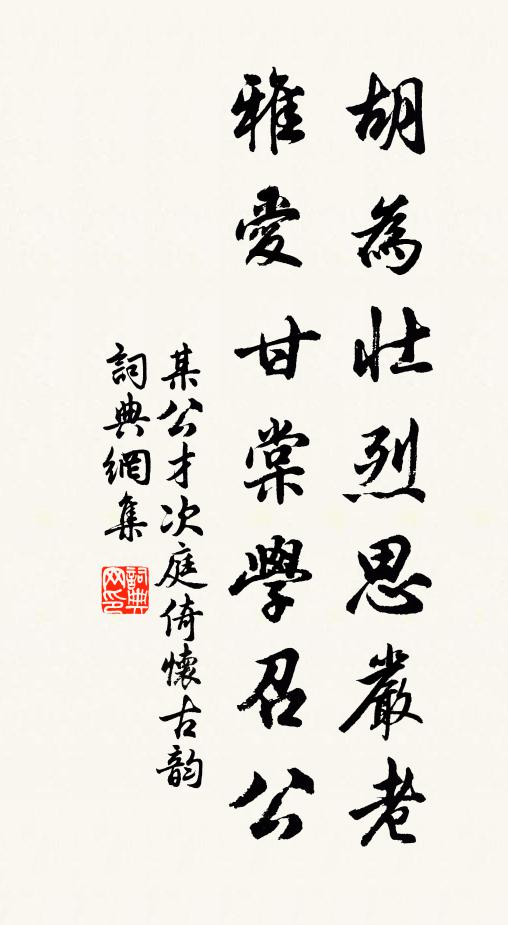 胡為壯烈思嚴老
雅愛甘棠學召公
某公才次庭倚懷古韵
詞典網集
詞典網印